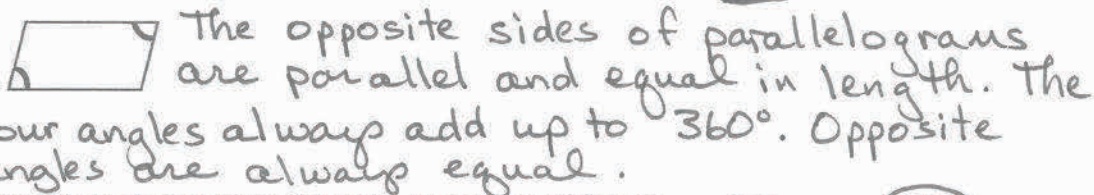 The opposite sides of parallelograms
are parallel and equal in length. The
our angles always add up to 360°. Opposite
ngles are always equal.